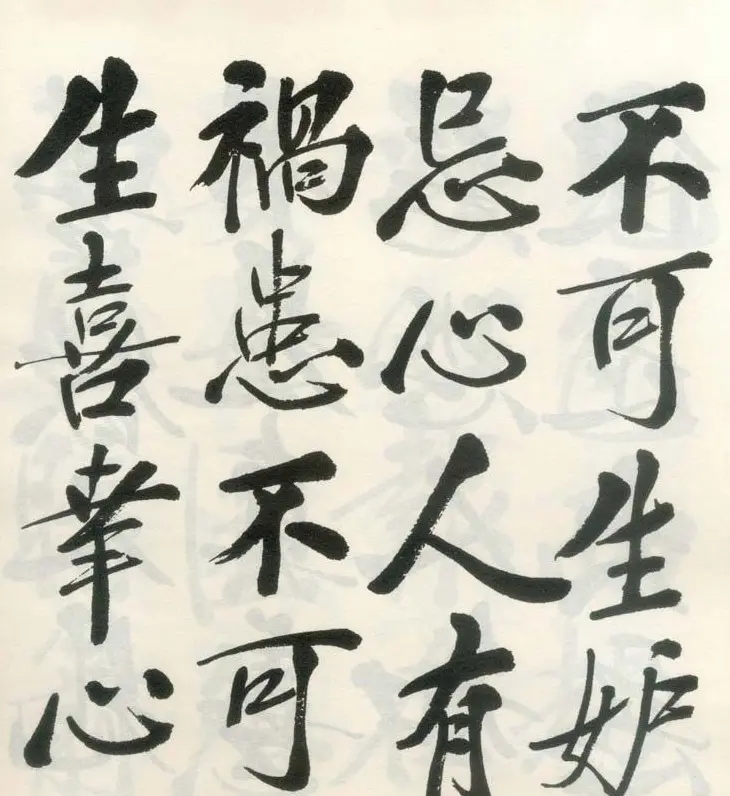 不可生妒
忌心人有
禍患不可
生喜幸心